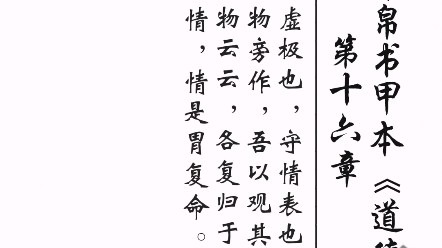 帛书甲本《道
第十六章
虚极也，守情表也
物旁作，吾以观其
物云云，各复归于
情，情是胃复命。